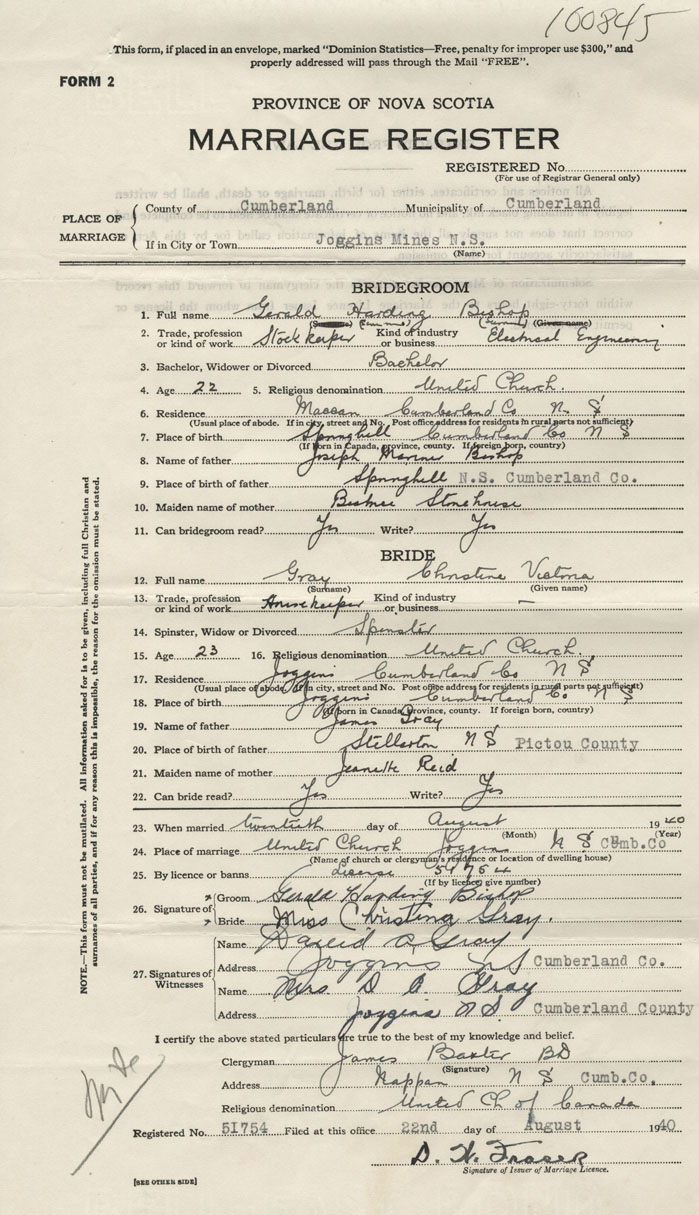 100845
This form, if placed in an envelope, marked "Dominion Statistics—Free, penalty for improper use $300," and
properly addressed will pass through the Mail "FREE".
FORM 2
PROVINCE OF NOVA SCOTIA
MARRIAGE REGISTER
REGISTERED No.
(For use of Registrar General only)
PLACE OF MARRIAGE
County of Cumberland Municipality of Cumberland
If in City or Town Joggins Mines N.S.
(Name)
BRIDEGROOM
1. Full name Gerald Harding Bishop
(Surname) (Given name)
2. Trade, profession or kind of work Stockkeeper Kind of industry or business Electrical Engineering
3. Bachelor, Widower or Divorced Bachelor
4. Age 22 5. Religious denomination United Church.
6. Residence Maccan Cumberland Co N. S
(Usual place of abode. If in city, street and No. Post office address for residents in rural parts not sufficient)
7. Place of birth Springhill Cumberland Co N S
(If born in Canada, province, county. If foreign born, country)
8. Name of father Joseph Marine Bishop
9. Place of birth of father Springhill N.S. Cumberland Co.
10. Maiden name of mother Stonehouse
11. Can bridegroom read? Yes Write? Yes
BRIDE
12. Full name Gray Christine Victoria
(Surname) (Given name)
13. Trade, profession or kind of work Housekeeper Kind of industry or business —
14. Spinster, Widow or Divorced Spinster
15. Age 23 16. Religious denomination United Church.
17. Residence Joggins Cumberland Co N S
(Usual place of abode. If in city, street and No. Post office address for residents in rural parts not sufficient)
18. Place of birth Joggins Cumberland Co. N S
(If born in Canada, province, county. If foreign born, country)
19. Name of father James Gray
20. Place of birth of father Stellarton N S Pictou County
21. Maiden name of mother Jeanette Reid
22. Can bride read? Yes Write? Yes
23. When married twentieth day of August 1940
(Month) (Year)
24. Place of marriage United Church Joggins N S Cumb.Co
(Name of church or clergyman's residence or location of dwelling house)
25. By licence or banns License 51754
(If by licence, give number)
26. Signature of
Groom Gerald Harding Bishop
Bride Miss Christina Gray.
27. Signatures of Witnesses
Name David A Gray
Address Joggins NS Cumberland Co.
Name Mrs. D A. Gray
Address Joggins N.S. Cumberland County
I certify the above stated particulars are true to the best of my knowledge and belief.
Clergyman James Baxter BD
(Signature)
Address Nappan N S Cumb.Co.
Religious denomination United Ch of Canada
Registered No. 51754 Filed at this office 22nd day of August 1940
D. H. Fraser
Signature of Issuer of Marriage Licence.
[SEE OTHER SIDE]
NOTE.—This form must not be mutilated. All information asked for is to be given, including full Christian and
surnames of all parties, and if for any reason this is impossible, the reason for the omission must be stated.